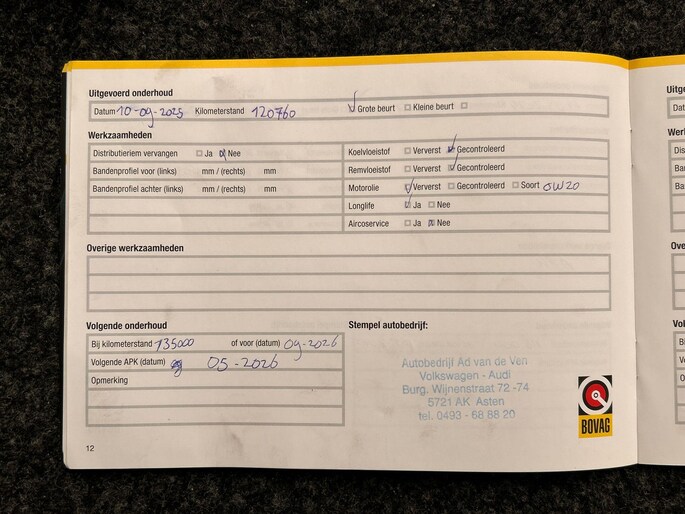 Uitgevoerd onderhoud
Datum 10-09-2025 Kilometerstand 120760 Grote beurt Kleine beurt
Werkzaamheden
Distributieriem vervangen Ja Nee
Bandenprofiel voor (links) mm / (rechts) mm
Bandenprofiel achter (links) mm / (rechts) mm
Koelvloeistof Ververst Gecontroleerd
Remvloeistof Ververst Gecontroleerd
Motorolie Ververst Gecontroleerd Soort 0W20
Longlife Ja Nee
Aircoservice Ja Nee
Overige werkzaamheden
Volgende onderhoud
Bij kilometerstand 135000 of voor (datum) 09-2026
Volgende APK (datum) 05-2026
Opmerking
Stempel autobedrijf:
Autobedrijf Ad van de Ven
Volkswagen - Audi
Burg. Wijnenstraat 72 -74
5721 AK Asten
tel. 0493 - 68 88 20
BOVAG
12